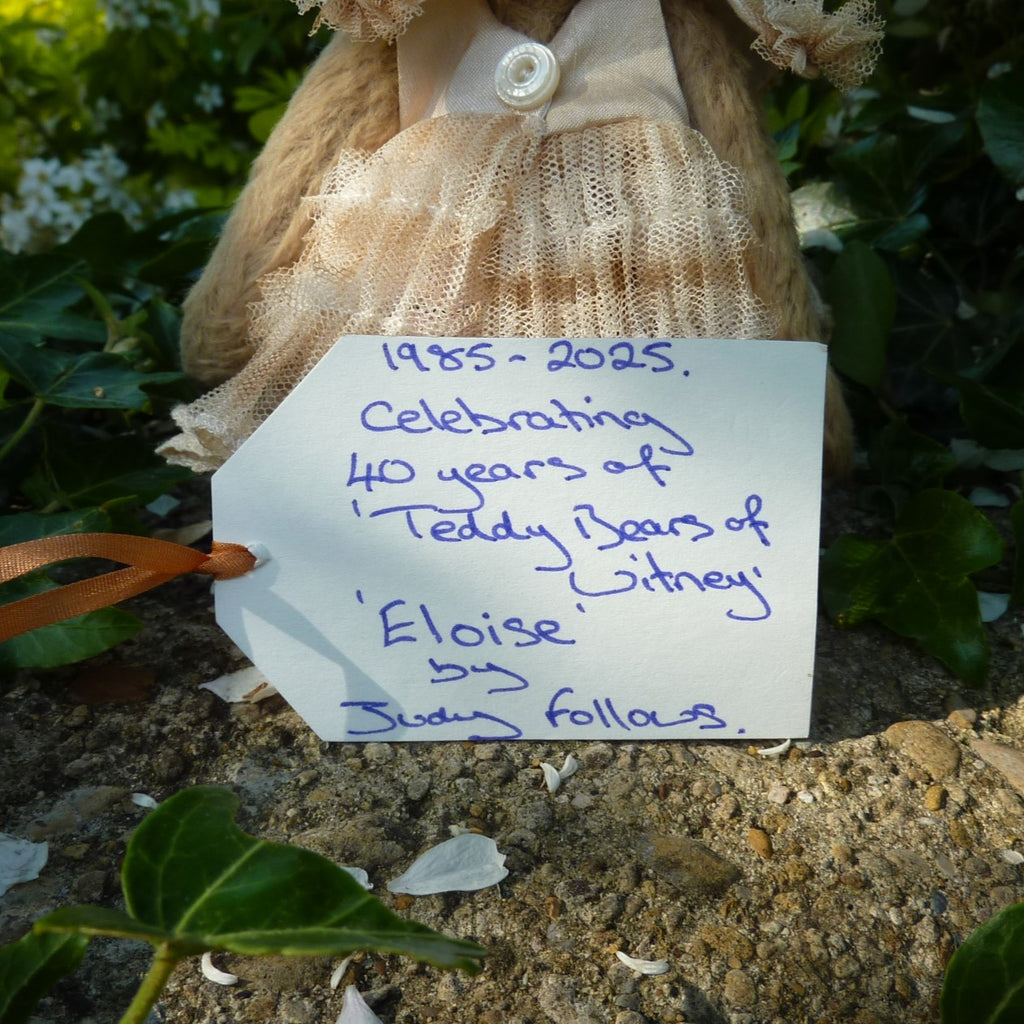 1985-2025.
Celebrating
40 years of
'Teddy Bears of
Witney'
'Eloise'
by
Judy Follows.